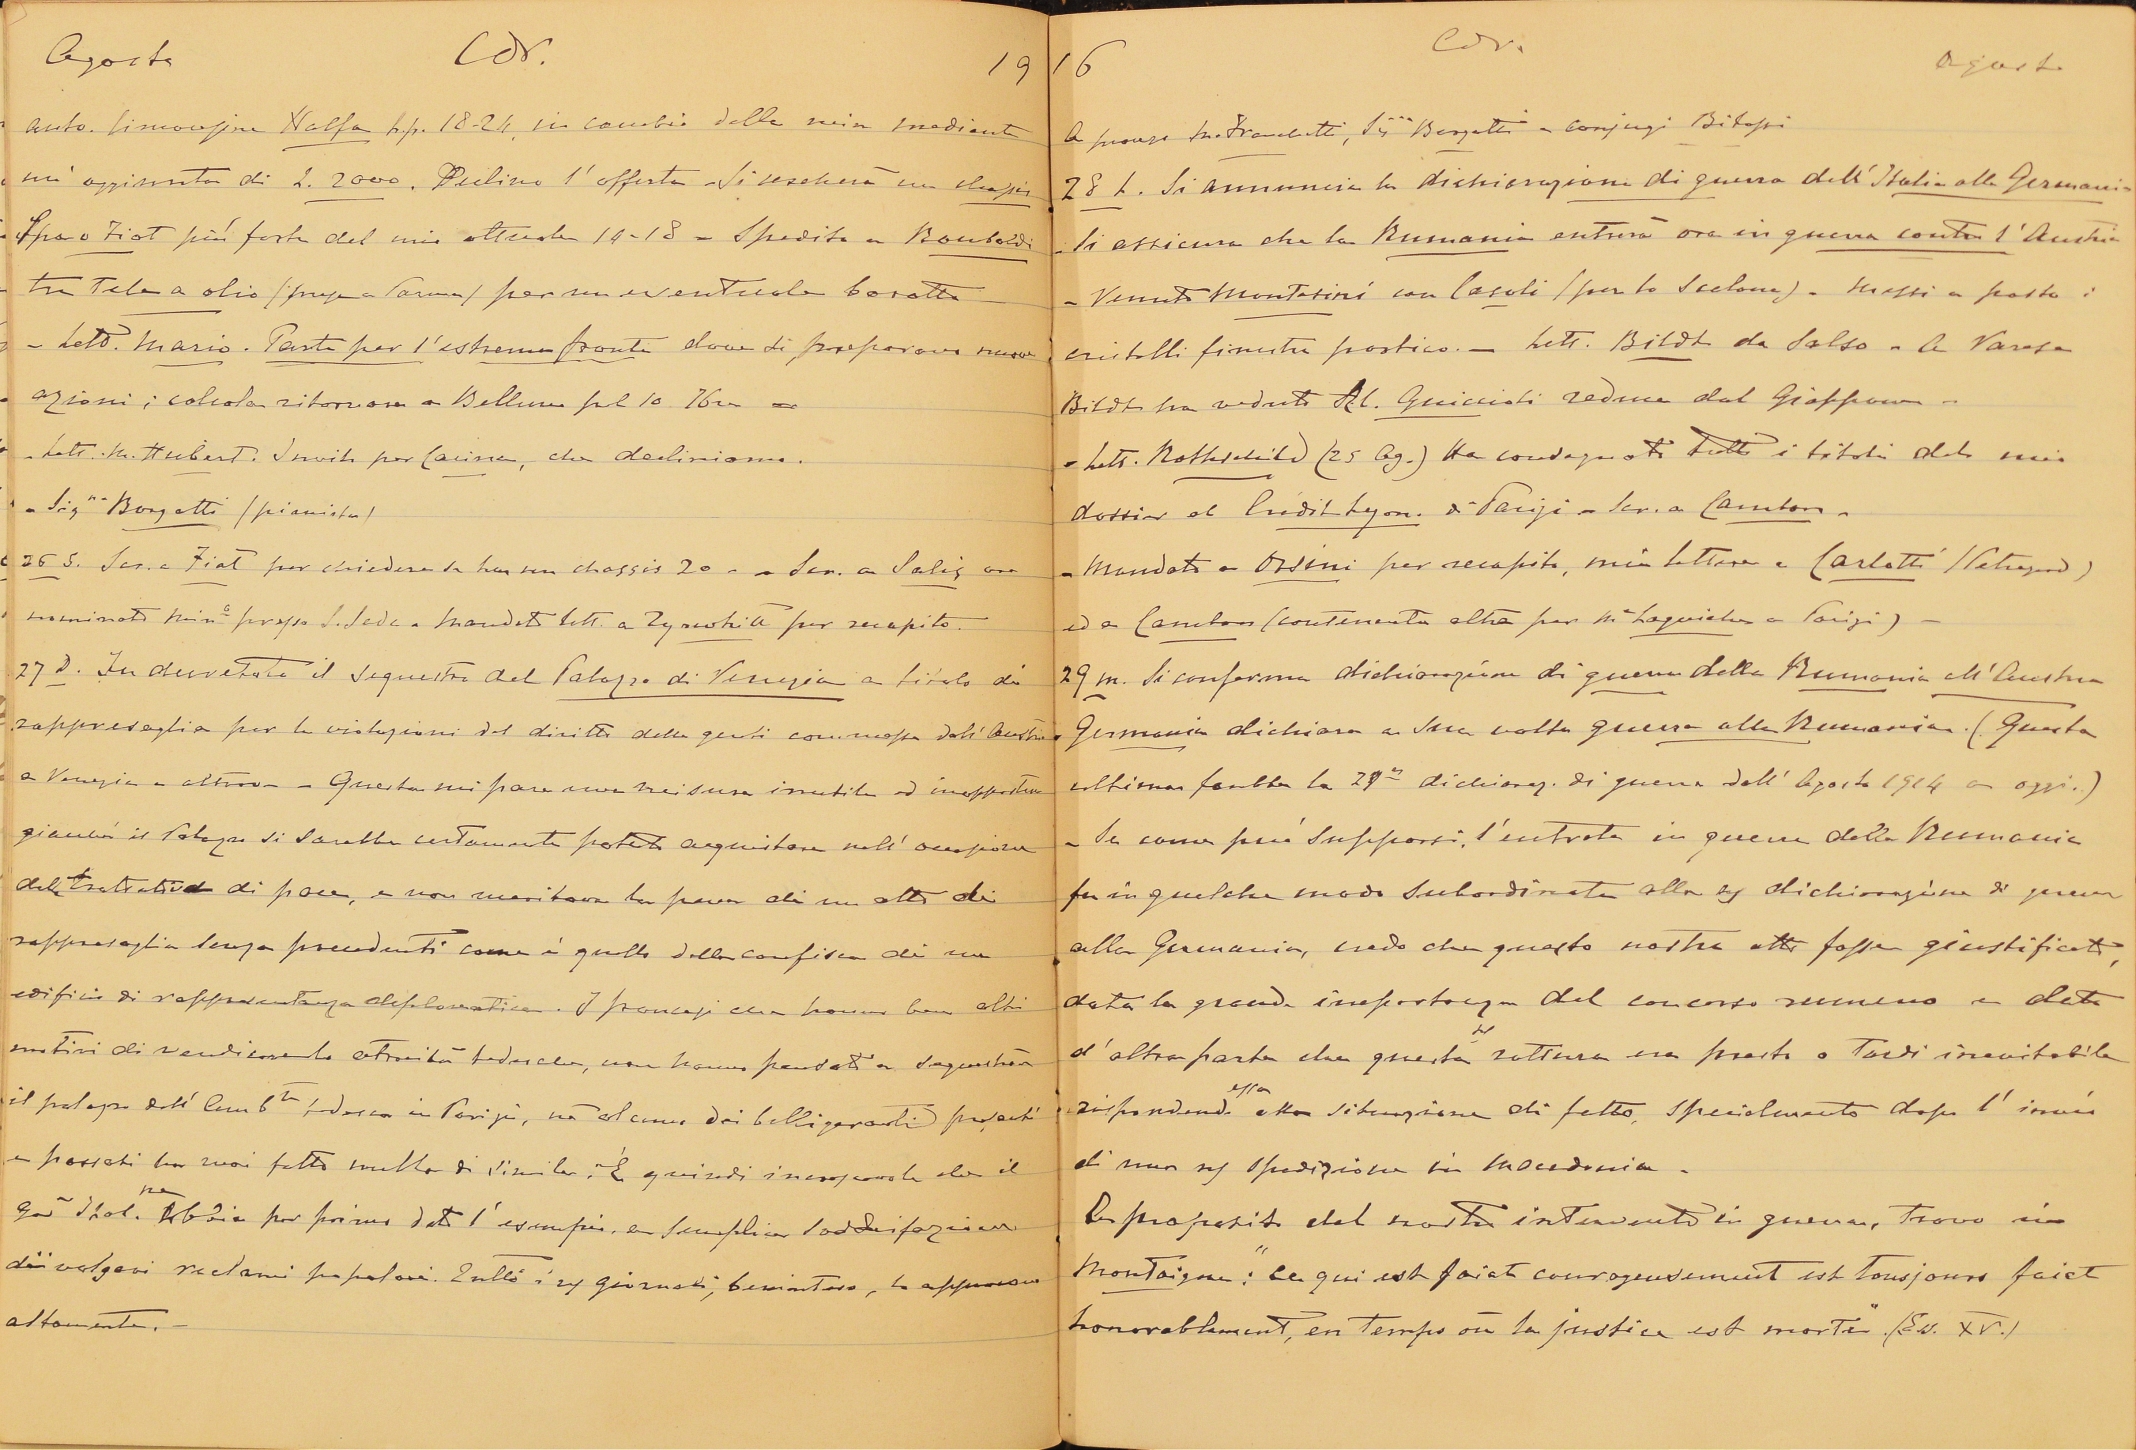 Agosto Cdr. 19
auto. limousine Nalfa h.p. 18-24, in cambio della mia mediante
un' aggiunta di L. 2000. Declino l'offerta - Si cercherà un chassis
Spa o Fiat più forte del mio attuale 14-18 - Spedito a Bombaldi
tre Tele a olio per un eventuale baratto
- Lett. Mario. Parte per l'estremo fronte dove si preparano nuove
azioni; calcola ritornare a Belluno pel 10 -
- Lett. M. Hubert. Invito per Carina, che decliniamo.
- Sig.na Borzatti (pianista)
26 S. Scr. a Fiat per chiedere se ha un chassis 20 - - Scr. a Salis ora
nominato Min.o presso S. Sede - Mandato lett. a per recapito.
27 D. Fu decretato il sequestro del Palazzo di Venezia a titolo di
rappresaglia per le violazioni del diritto delle genti commesse dall'Austria
a Venezia e altrove - Questa mi pare una misura inutile ed inopportuna
giacché il Palazzo si sarebbe certamente potuto acquistare nell'occasione
delle trattative di pace, e non meritava la pena di un atto di
rappresaglia senza precedenti come è quello della confisca di un
edificio di rappresentanza diplomatica. I francesi che hanno ben altri
motivi di vendicare le atrocità tedesche, non hanno pensato a sequestrare
il palazzo dell'Amb.ta tedesca in Parigi, nè alcuno dei belligeranti presenti
e passati ha mai fatto nulla di simile. È quindi increscevole che il
Gov. Ital. ne abbia per primo dato l'esempio, a semplice soddisfazione
di volgari reclami popolari. Tutti i ns giornali, beninteso, lo approvano
altamente. -
16 Cdr. Agosto
A pranzo M. Franchetti, Sig.na Borzatti e conjugi Bitossi
28 L. Si annuncia la dichiarazione di guerra dell'Italia alla Germania
- Si assicura che la Rumania entrerà ora in guerra contro l'Austria
- Venuto Montesini con Casoli - Messi a posto i
cristalli finestre portico. - Lett. Bildt da Salso - A Varese
Bildt ha veduto Al. Guiccioli reduce dal Giappone -
- Lett. Rothschild (25 Ag.) Ha consegnato tutti i titoli del mio
dossier al Crédit Lyon. di Parigi - Scr. a Cambon -
- Mandato a Orsini per recapito, mia lettera a Carlotti (Petrograd)
ed a Cambon (contenente altra per M. Laguiche a Parigi) -
29 m. Si conferma dichiarazione di guerra della Rumania all'Austria
Germania dichiara a sua volta guerra alla Rumania. (Questa
ultima sarebbe la dichiaraz. di guerra dall'Agosto 1914 a oggi.)
- Se come può supporsi, l'entrata in guerra della Rumania
fu in qualche modo subordinata alla ns dichiarazione di guerra
alla Germania, credo che questo nostro atto fosse giustificato,
data la grande importanza del concorso rumeno e dato
d'altra parte che questa ns rottura era presto o tardi inevitabile
rispondendo essa alla situazione di fatto, specialmente dopo l'invio
di una ns spedizione in Macedonia -
A proposito del nostro intervento in guerra, trovo in
Montaigne: "Ce qui est faict courageusement est tousjours faict
honorablement, en temps où la justice est morte". (Es. XV.)